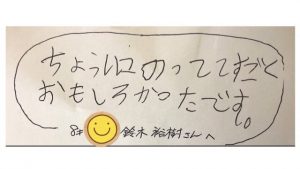 ちょうしにのっててすごく
おもしろかったです。
鈴木裕樹さんへ